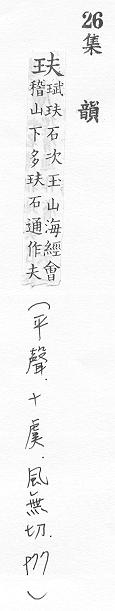 26
集韻
玞
珷玞石次玉山海經會
稽山下多玞石通作夫
(平聲.十虞.風無切.P77)